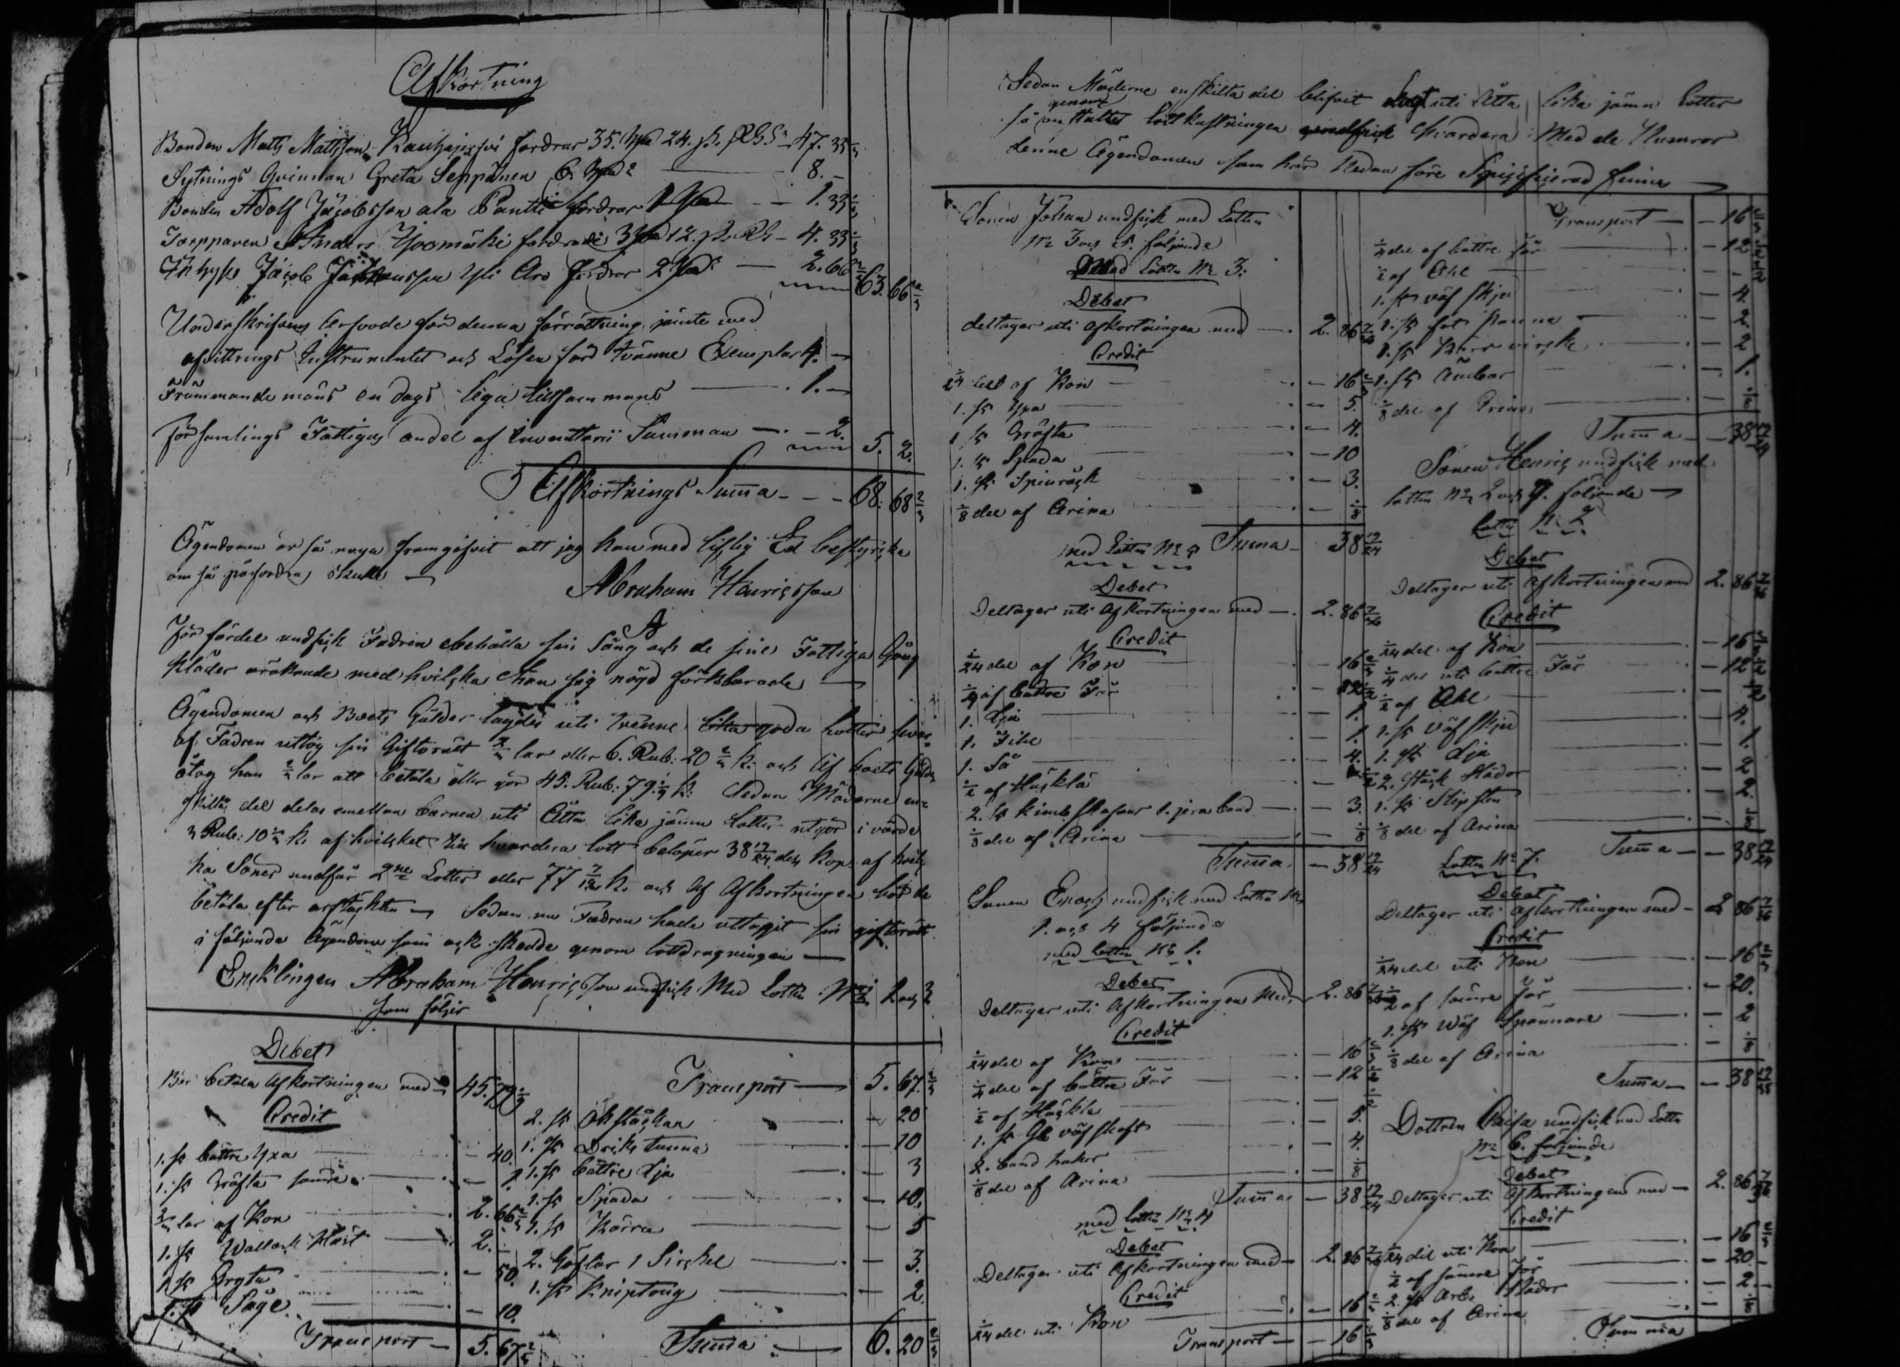 Afkortning
Bonden Matts Mattsson Kauhajärfvi fordrar 35. 24. 47. 33 1/3
Sytnings Qvinnan Greta Seppänen 6. 8. -
Bonden Adolf Jacobsson ala Pantti fordrar 1 - 1. 33 1/3
Torpparen Anders Yjoomäki fordrar 3 12. - 4. 33 1/3
Inhyse Jacob yli Aro fordrar 2 - 2. 66 2/3 63. 66 2/3
Underskrifvens Arfvode för denna förrättning jämte med
afvittrings Instrumentet och Lösen för tvänne Exemplar 4. -
Främmande mans en dags lega tillsammans - 1. -
Församlings Fattigas andel af Inventarii Summan - 2. 5. 2.
Afkortnings Summa - 68. 68 2/3
Ägendomen är så noga framgifvit att jag kan med liflig Ed bestyrka
om så påfordras skulle
Abraham Henricsson
Förfördel undfick Fadren behålla sin Säng och de sine Fattiga Gång
kläder orökande med hvilcka han sig nöjd förklarade
Ägendomen och Boets Gälder lagdes uti tvenne lika goda lotter hvar
af Fadren uttog sin Giftorätt 2/3 lar eller 6. Rub: 20 2/3 K: och af boets Gäld
åtog han 2/3 lar att betala eller gör 45. Rub: 79 1/9 K: Sedan Möderne en
skilta del delas emellan barnen uti Åtta lika jämna Lotter utgör i värde
3 Rub: 10 1/3 K: af hvilcket till hvardera lott belöper 38 19/24 dels Kop: af hvilc
ka Söner undfår 2ne Lotter eller 77 7/12 K: och af Afkortningen bör de
betala efter arftäckten Sedan nu Fadren hade uttagit sin giftorätt
i följande Ägendom som ock skedde genom lottdragningen
Encklingen Abraham Henricsson undfick Med Lotten No 1 2 och 3
som följer
Debet
Bör betala Afkortningen med 45. 79 1/9
Credit
1. st bättre Yxa - 40.
1. st Gräfta sämre - 2
2/3 lar af Kon 2. 66 2/3
1. st Wallack Häst 2. -
1. st Gryta - 50.
1. st Såge - 10.
Transport - 5. 67 2/3
Transport - 5. 67 2/3
2. st Ökstockar - 20
1. st Dricks tunna - 10
1. st bättre Lja - 3
1. st Spada - 10.
1. st Kärra - 5
2. Gaflar 1 Sirkel - 3.
1. st Kniptong - 2
Summa - 6. 20 2/3
Sedan Möderne enskilta del blifvit lagt uti Åtta lika jämna Lotter
så genom lottkastningen undfick hvardera Med de Numror
denne Ägendomen som här Nedan före Specificerad finnes
Sonen Johan undfick med Lotten
No 3 och 5. följande
Med Lotten No 3:
Debet
deltager uti Afkortningen med - 2. 86 7/36
Credit
1/24 del af Kon - 16 2/3
1. st Yxa - 5.
1. st Gräfta - 4.
1. st Spada - 10
1. st Spinråck - 3.
1/8 del af Arina - 1/8
Summa - 38 19/24
med Lotten No 5
Debet
Deltager uti Afkortningen med - 2. 86 7/36
Credit
1/24 del af Kon - 16 2/3
1/4 af bättre Får - 12 1/2
1. Lja - 1.
1. File - 1.
1. Så - 4.
1/2 af Häckla
2. st - 3.
1/8 del af Arina - 1/8
Summa - 38 19/24
Sonen Enoch undfick med Lotten No
1. och 4 följande
med Lotten No 1.
Debet
Deltager uti Afkortningen Med - 2. 86 7/36
Credit
1/24 del af Kon - 16 2/3
1/4 del af bättre Får - 12 1/2
1/2 af Häckla - 1/2
1. st väfskaft - 5.
2. band - 4.
1/8 del af Arina - 1/8
Summa - 38 19/24
med Lotten No 4
Debet
Deltager uti Afkortningen med - 2. 86 7/36
Credit
1/24 del uti Kon - 16 2/3
Transport - 16 2/3
Transport - 16 2/3
1/4 del af bättre får - 12 1/2
1/2 af Ahl - 1/2
1. st väf skjed - 4.
1. st panna - 2
1. st - 2
1. st Ämbar - 1.
1/8 del af Arina - 1/8
Summa - 38 19/24
Sonen Henric undfick med
lotten No 2 och 7. följande
Lotten No 2.
Debet
Deltager uti Afkortningen med 2. 86 7/36
Credit
1/24 del af Kon - 16 2/3
1/4 del uti bättre Får - 12 1/2
1/2 af Ahl - 1/2
1. st väf skjed - 4.
1. st Lja - 1.
2. - 2
1. st - 2.
1/8 del af Arina - 1/8
Summa - 38 19/24
Lotten No 7.
Debet
Deltager uti Afkortningen med - 2 86 7/36
Credit
1/24 del uti Kon - 16 2/3
1/2 af sämre får - 20.
1. st Wäf Spannare - 2
1/8 del af Arina - 1/8
Summa - 38 19/24
Dottren Caisa undfick med Lotten
No 6. följande
Debet
Deltager uti Afkortningen med - 2. 86 7/36
Credit
1/24 del uti Kon - 16 2/3
1/2 af sämre får - 20 -
2. st - 2. -
1/8 del af Arina - 1/8
Summa